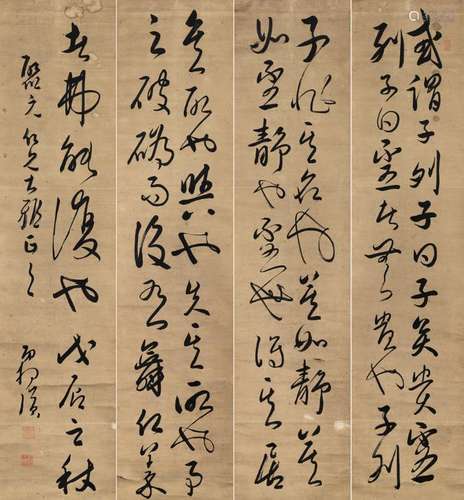 或謂子列子曰子奚貴虛
列子曰虛者無貴也子列
子非其名也莫如靜莫
如虛靜也虛也得其居
矣取也與也失其所也事
之破䃣而後有舞仁義
者弗能復也戊辰之秋
仁兄大雅正之